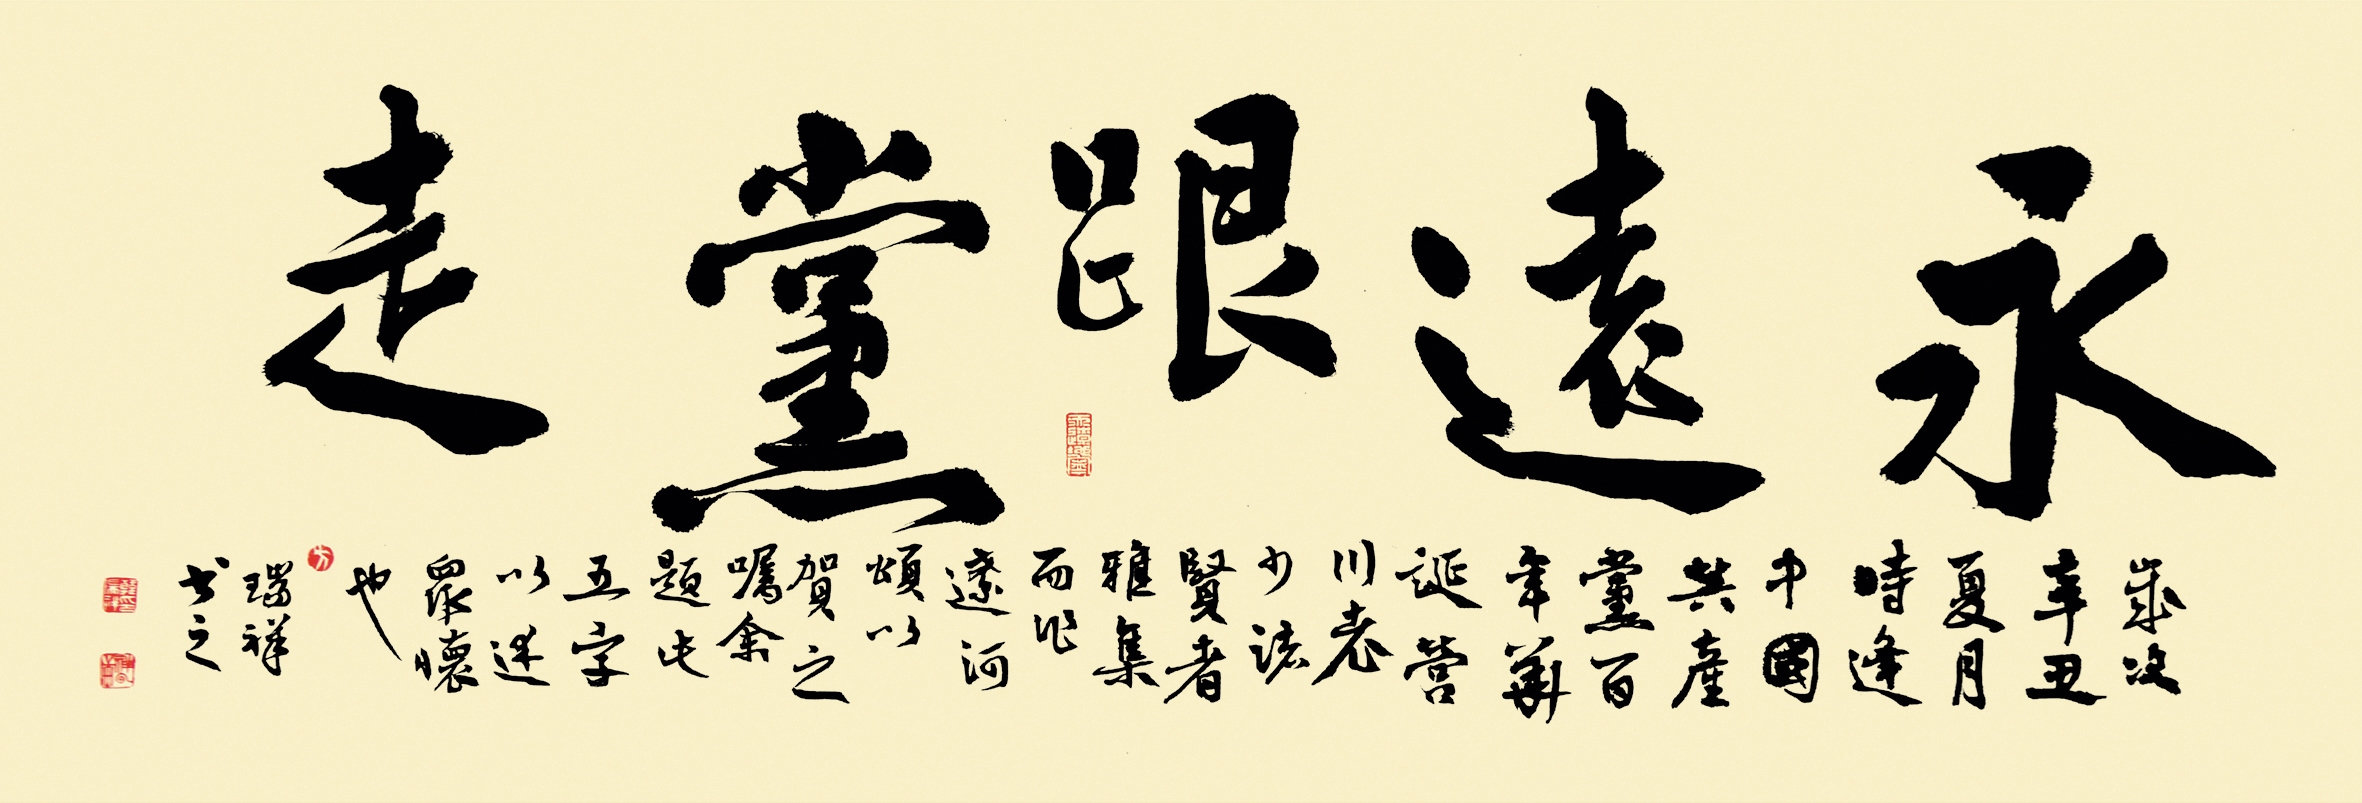 永遠跟黨走
歲次
辛丑
夏月
時逢
中國
共產
黨百
年華
誕營
川老
少諸
賢者
雅集
而作
遼河
頌以
賀之
囑余
題此
五字
以述
眾懷
也
瑞祥
书之